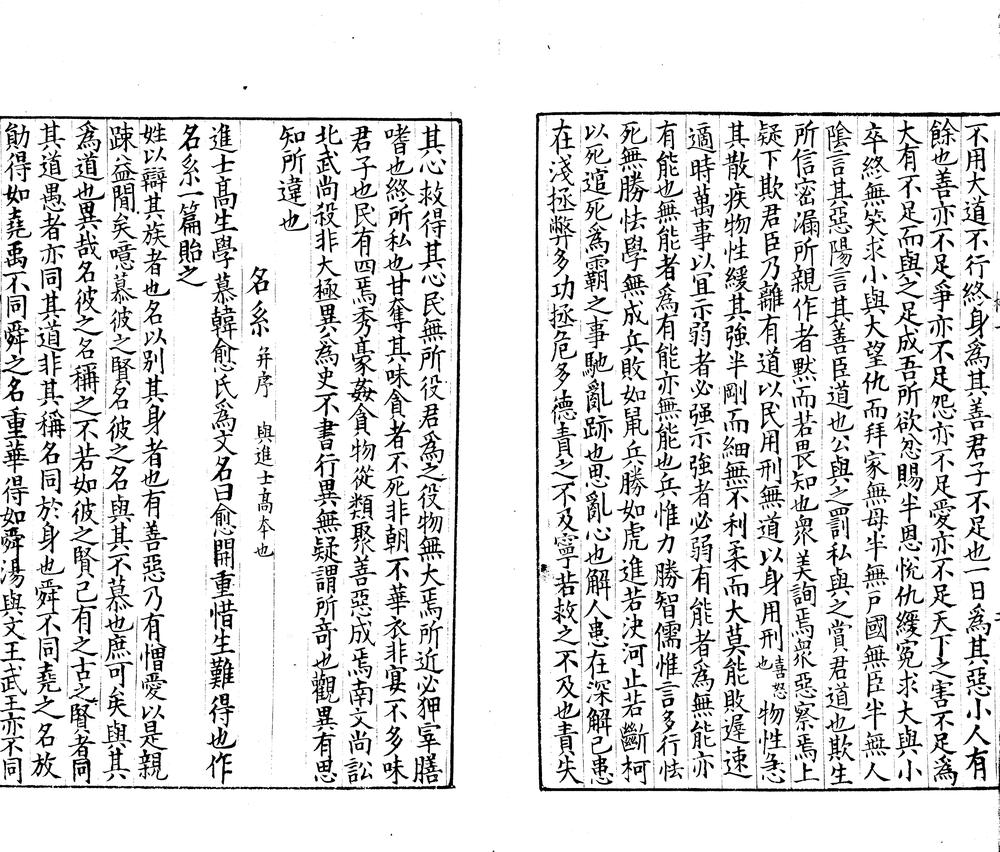 不用大道不行終身為其善君子不足也一日為其惡小人有
餘也善亦不足爭亦不足怨亦不足愛亦不足天下之害不足為
大有不足而與之足成吾所欲忿賜半恩悅仇緩冤求大與小
卒終無笑求小與大望仇而拜家無母半無戶國無臣半無人
陰言其惡陽言其善臣道也公與之罰私與之賞君道也欺生
所信密漏所親作者默而若畏知也衆美詢焉衆惡察焉上
疑下欺君臣乃離有道以民用刑無道以身用刑喜怒也物性急
其散疾物性緩其強半剛而細無不利柔而大莫能敗遲速
適時萬事以宜示弱者必强示強者必弱有能者為無能亦
有能也無能者為有能亦無能也兵惟力勝智儒惟言多行怯
死無勝怯學無成兵敗如鼠兵勝如虎進若決河止若斷柯
以死逭死為霸之事馳亂跡也思亂心也解人患在深解己患
在淺拯弊多功拯危多德責之不及寧若救之不及也責失
其心救得其心民無所役君為之役物無大焉所近必狎宰膳
嗜也終所私也甘奪其味貪者不死非朝不華衣非宴不多味
君子也民有四焉秀豪姦貪物從類聚善惡成焉南文尚訟
北武尚役非大極異為史不書行異無疑謂所奇也觀異有思
知所違也
名系 并序 與進士高本也
進士高生學慕韓愈氏為文名曰愈開重惜生難得也作
名系一篇貽之
姓以辯其族者也名以别其身者也有善惡乃有憎愛以是親
踈益閒矣噫慕彼之賢名彼之名與其不慕也庶可矣與其
為道也異哉名彼之名稱之不若如彼之賢己有之古之賢者同
其道愚者亦同其道非其稱名同於身也舜不同堯之名放
勛得如堯禹不同舜之名重華得如舜湯與文王武王亦不同